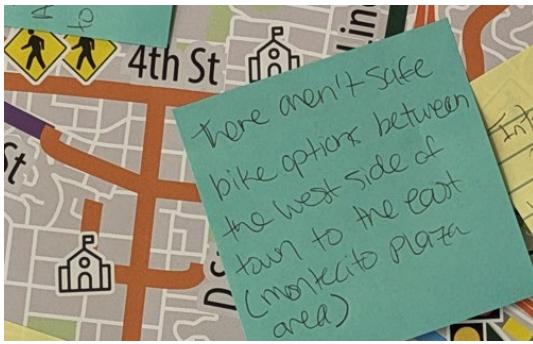 A
to
4th St
lin
There aren't safe
bike options between
the west side of
town to the east
(montecito plaza
area)
Int
St
D St